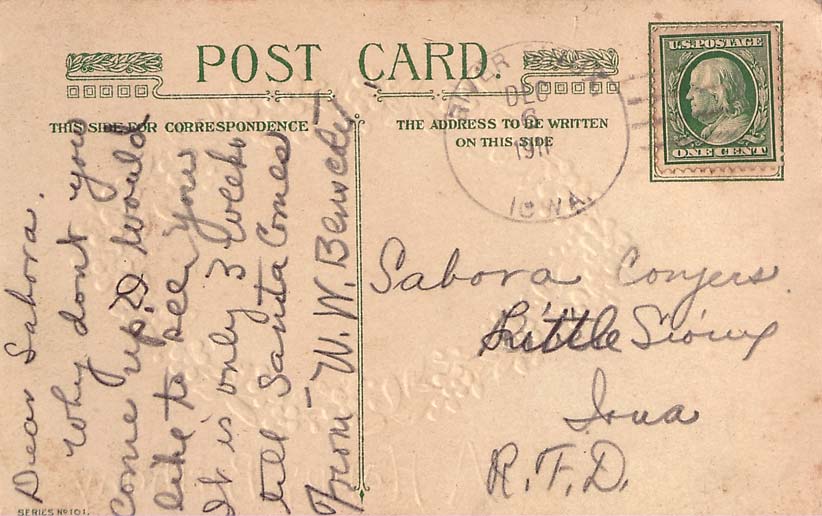 POST CARD.
THIS SIDE FOR CORRESPONDENCE
THE ADDRESS TO BE WRITTEN
ON THIS SIDE
RIVER
DEC
6
1911
IOWA.
U.S. POSTAGE
ONE CENT
Dear Sabora.
Why dont you
come up. I would
like to see you
It is only 3 weeks
till Santa Comes
From W. W.
Sabora Conyers.
Little Sioux
Iowa
R.F.D.
SERIES No 101.